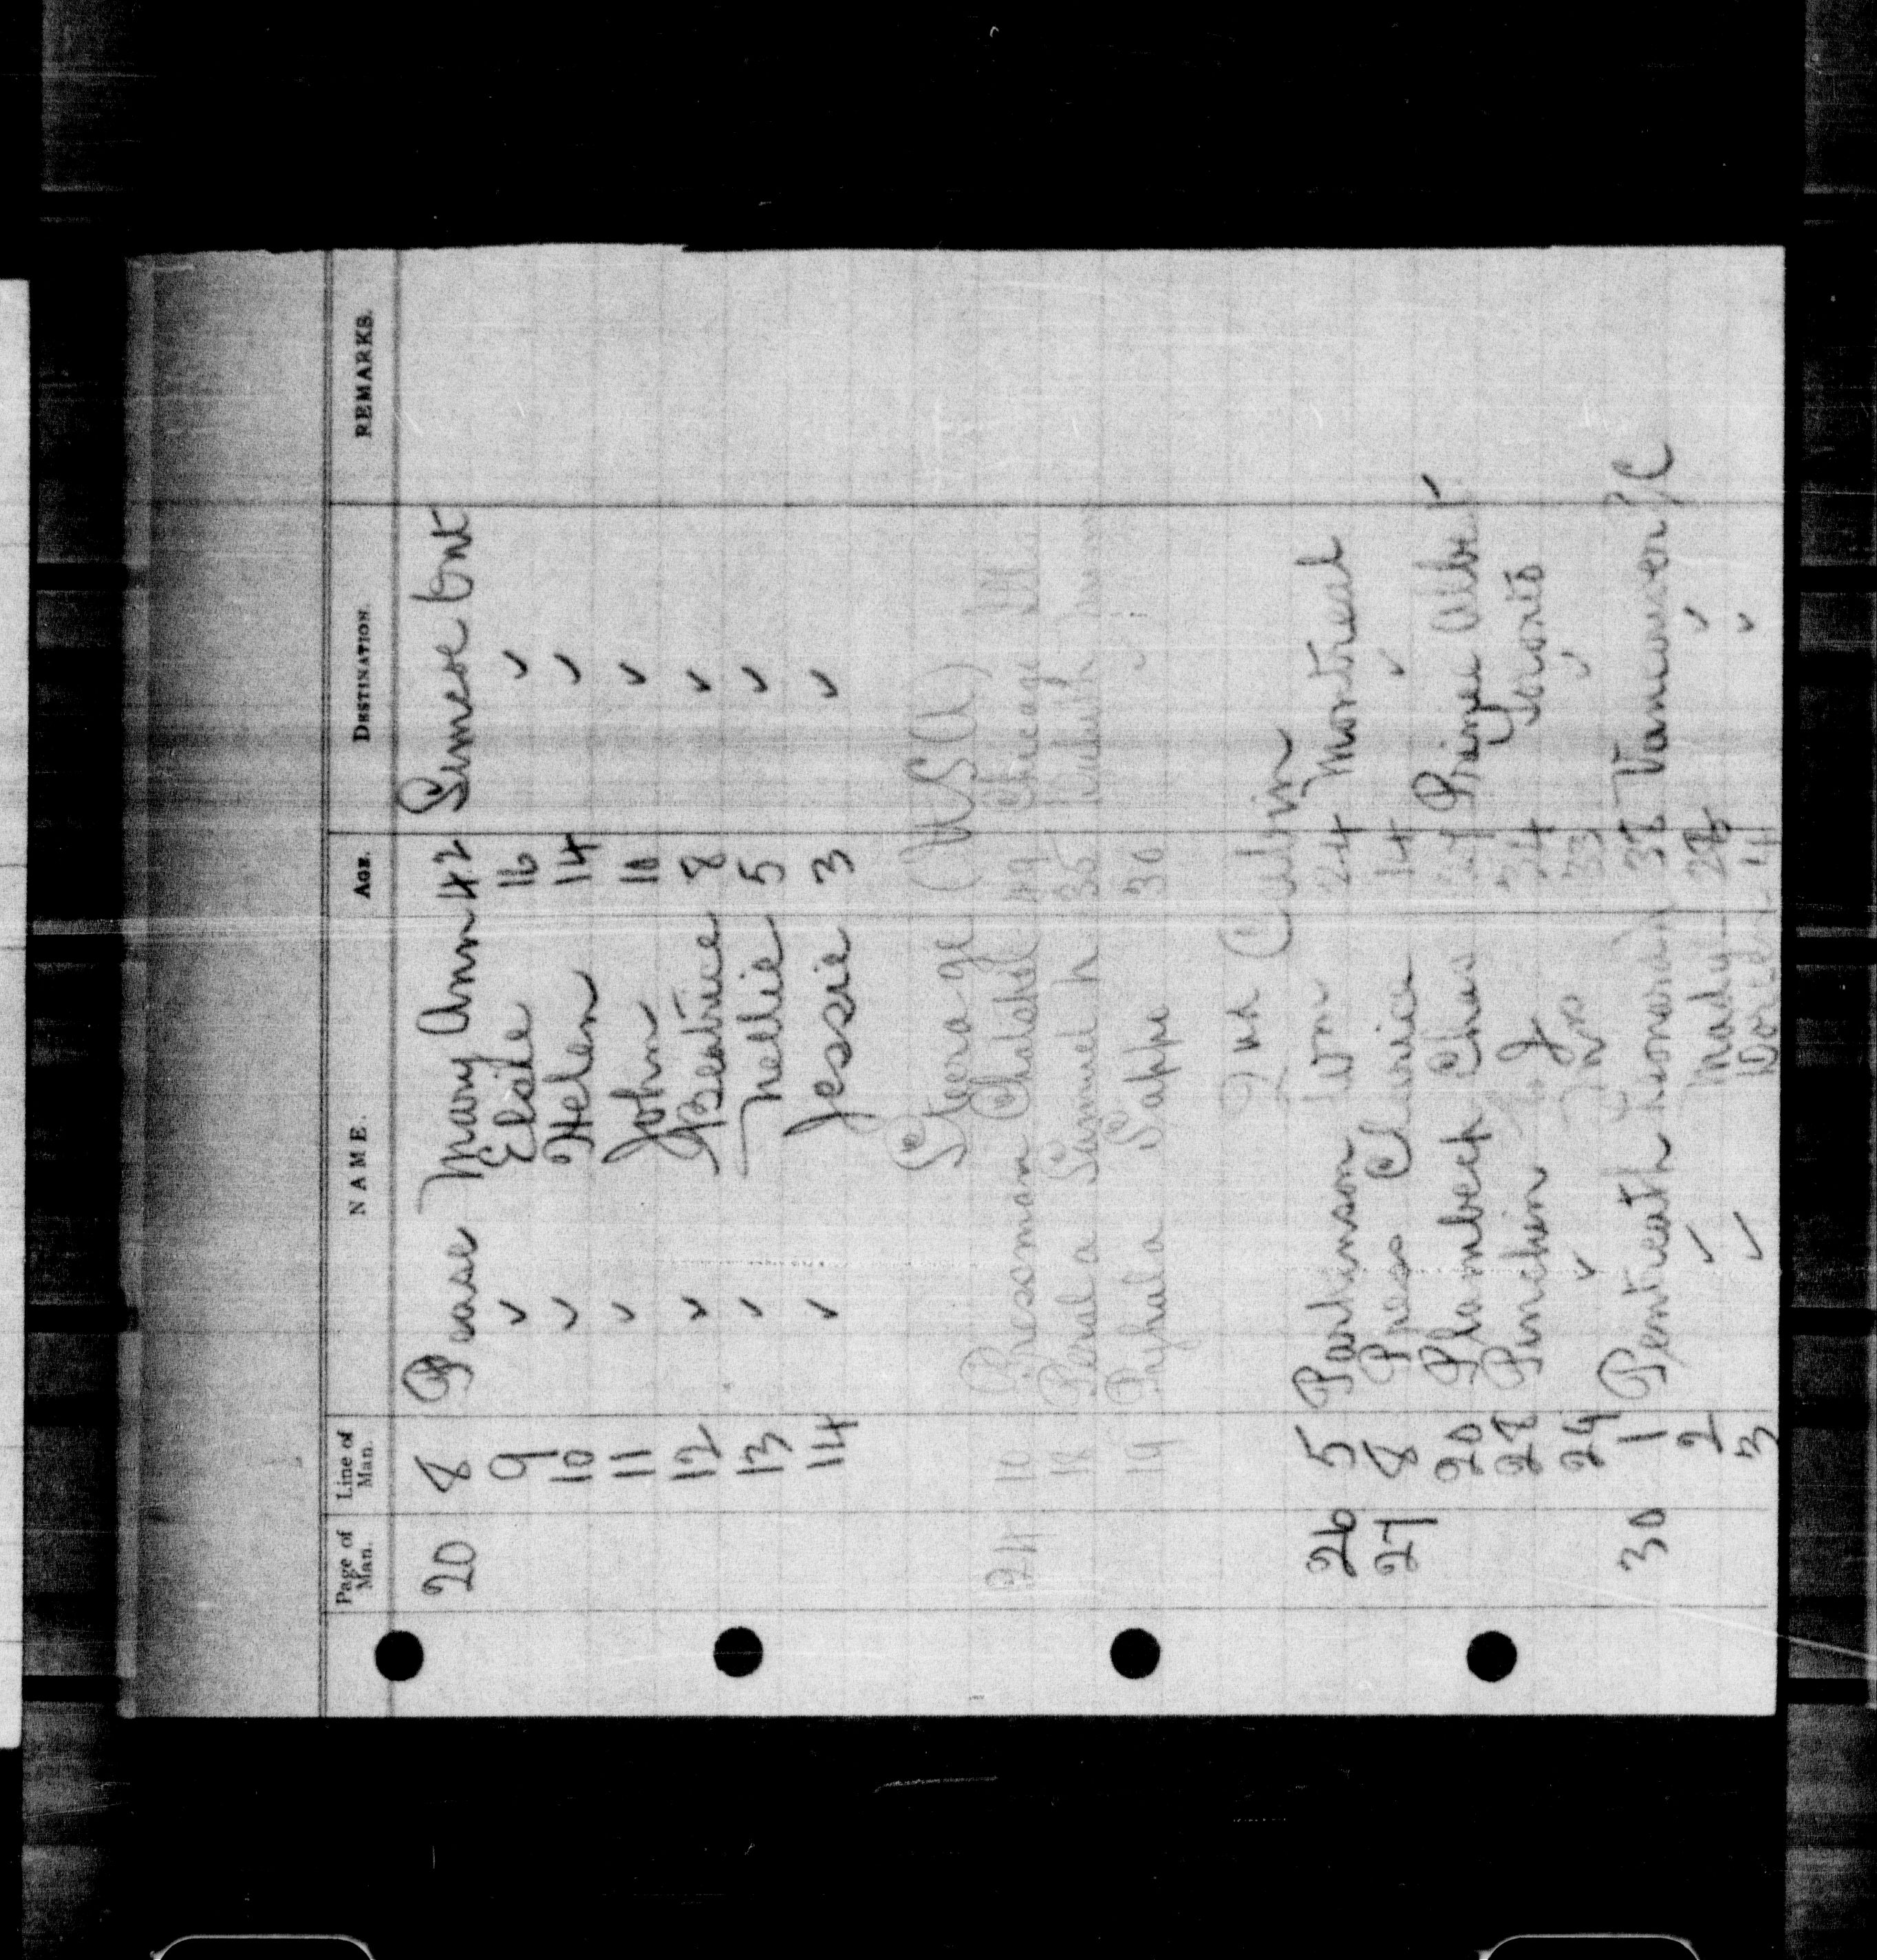 Page of Man. Line of Man. NAME. AGE. DESTINATION. REMARKS.
20 8 Pease Mary Ann 42 Simcoe Ont
9 ✓ Elsie 16 ✓
10 ✓ Helen 14 ✓
11 ✓ John 10 ✓
12 ✓ Beatrice 8 ✓
13 ✓ Nellie 5 ✓
14 ✓ Jessie 3 ✓
Steerage (USA)
24 10 Pressman Chatskel 49 Chicago Ill
18 Peral a Summel h 35 Duluth
19 Pyhala Sappe 30
2nd Cabin
26 5 Parkinson Wm 24 Montreal
27 8 Press Clarice 14 ✓
20 Plambeck Chas Prince Albert
28 Pinchin J 34 Toronto
29 ✓ Mrs 33 ✓
30 1 Pentreath Leonard 37 Vancouver BC
2 ✓ Mady 28 ✓
3 ✓ Doreen 4 ✓